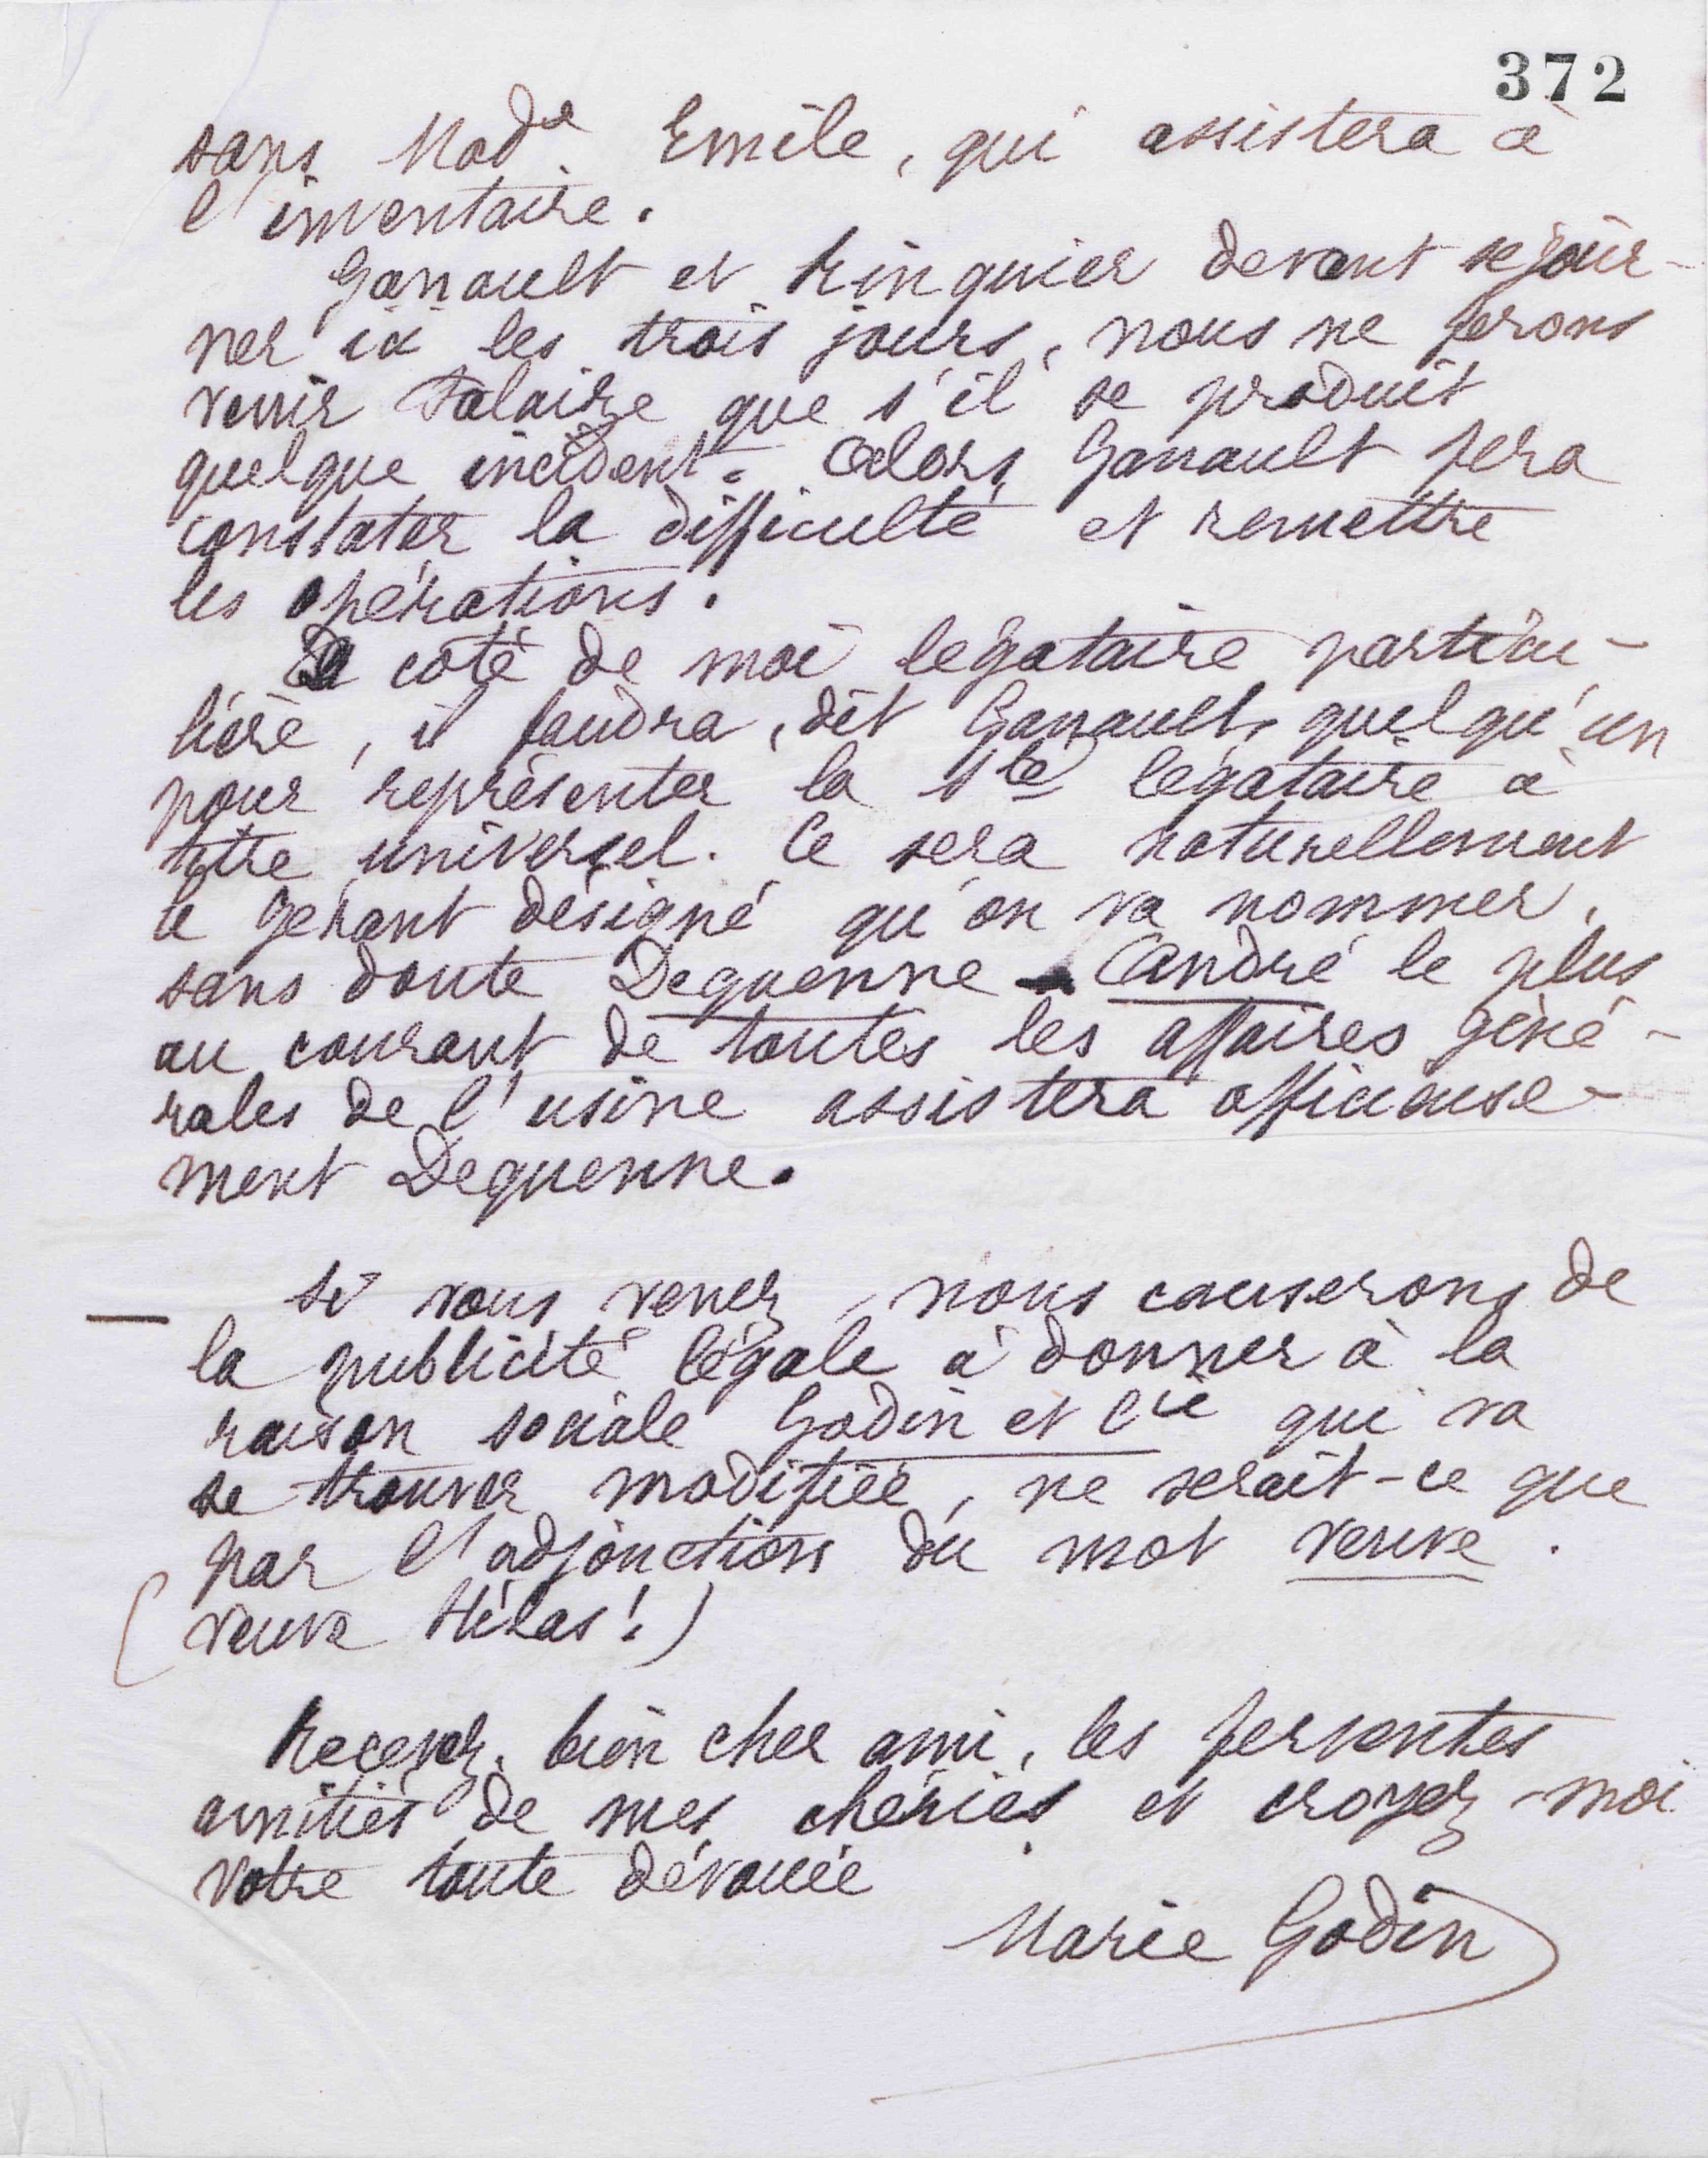 372
sans Mad.e Emile, qui assistera à
l'inventaire.
Ganault et Ringuier devant séjour-
ner ici les trois jours, nous ne ferons
venir Salaire que s'il se produit
quelque incident. Alors Ganault fera
constater la difficulté et remettre
les opérations.
A coté de moi légataire particu-
lière, il faudra, dit Ganault, quelqu'un
pour représenter la Sté légataire à
titre universel. Ce sera naturellement
le gérant désigné qu'on va nommer,
sans doute Dequenne. André le plus
au courant de toutes les affaires géné-
rales de l'usine assistera officieuse-
ment Dequenne.
— Si vous venez, nous causerons de
la publicité légale à donner à la
raison sociale Godin et Cie qui va
se trouver modifiée, ne serait-ce que
par l'adjonction du mot veuve.
(veuve Hélas!)
Recevez, bien cher ami, les ferventes
amitiés de mes chéries et croyez-moi
votre toute dévouée
Marie Godin